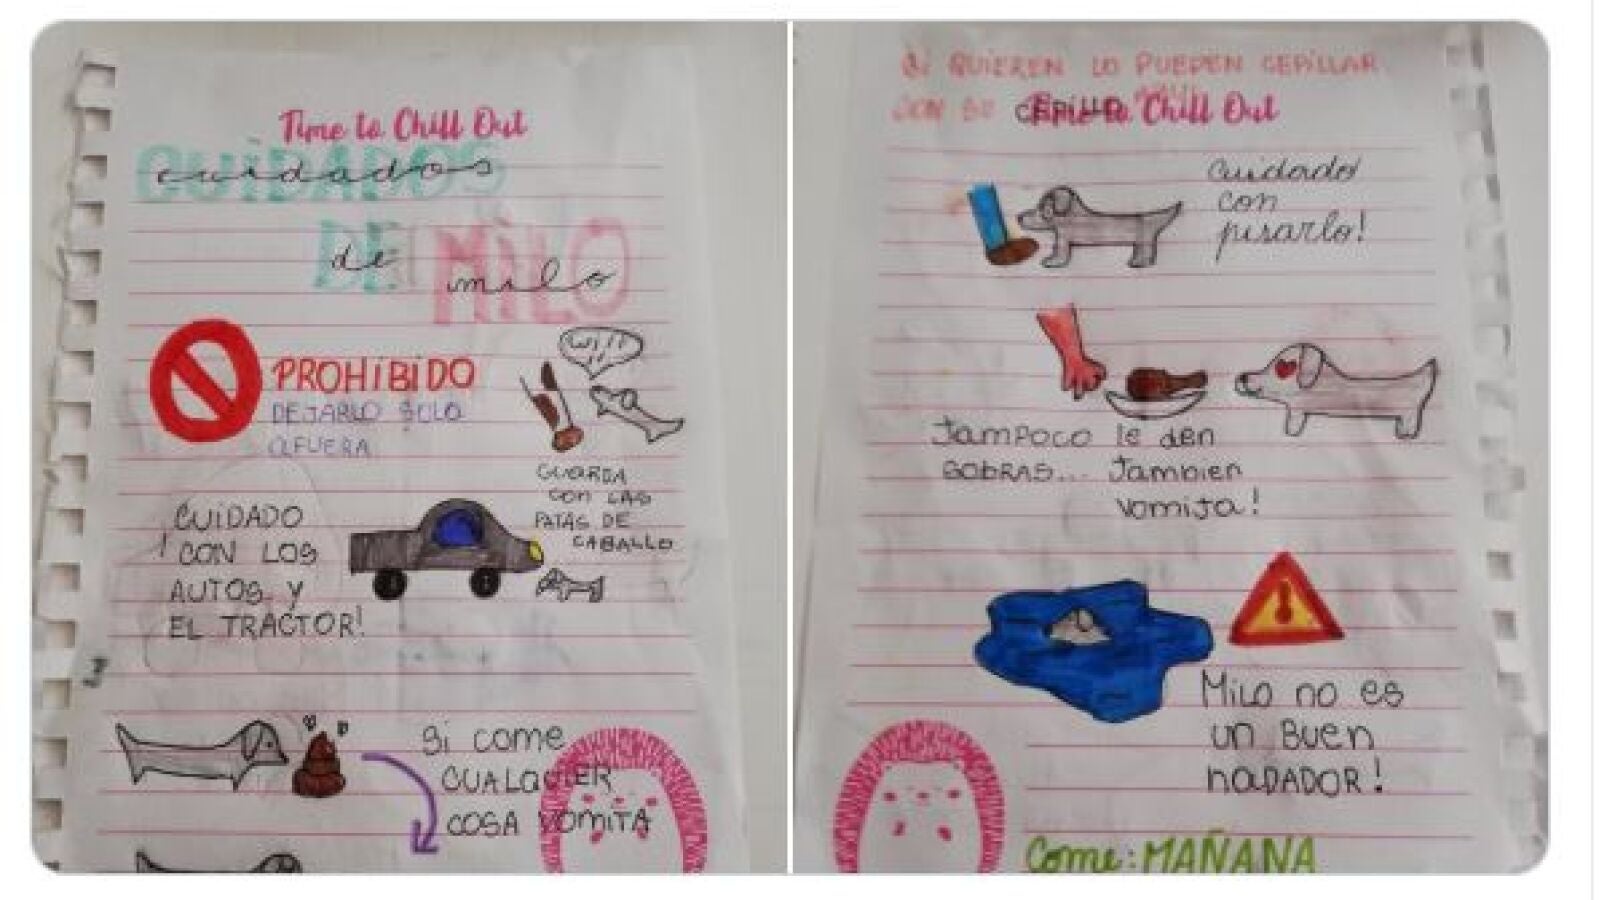 Time to Chill Out
CUIDADOS
cuidados
DE MILO
de milo
PROHIBIDO
DEJARLO SOLO
AFUERA
WIII
GUARDA
CON LAS
PATAS DE
CABALLO
¡CUIDADO
CON LOS
AUTOS Y
EL TRACTOR!
Si come
CUALQUIER
COSA VOMITA
Si QUIEREN LO PUEDEN CEPILLAR
CON SU CEPILLO
Time to Chill Out
Cuidado
con
pisarlo!
Tampoco le den
SOBRAS... Tambien
vomita!
Milo no es
un Buen
naDADOR!
Come: MAÑANA